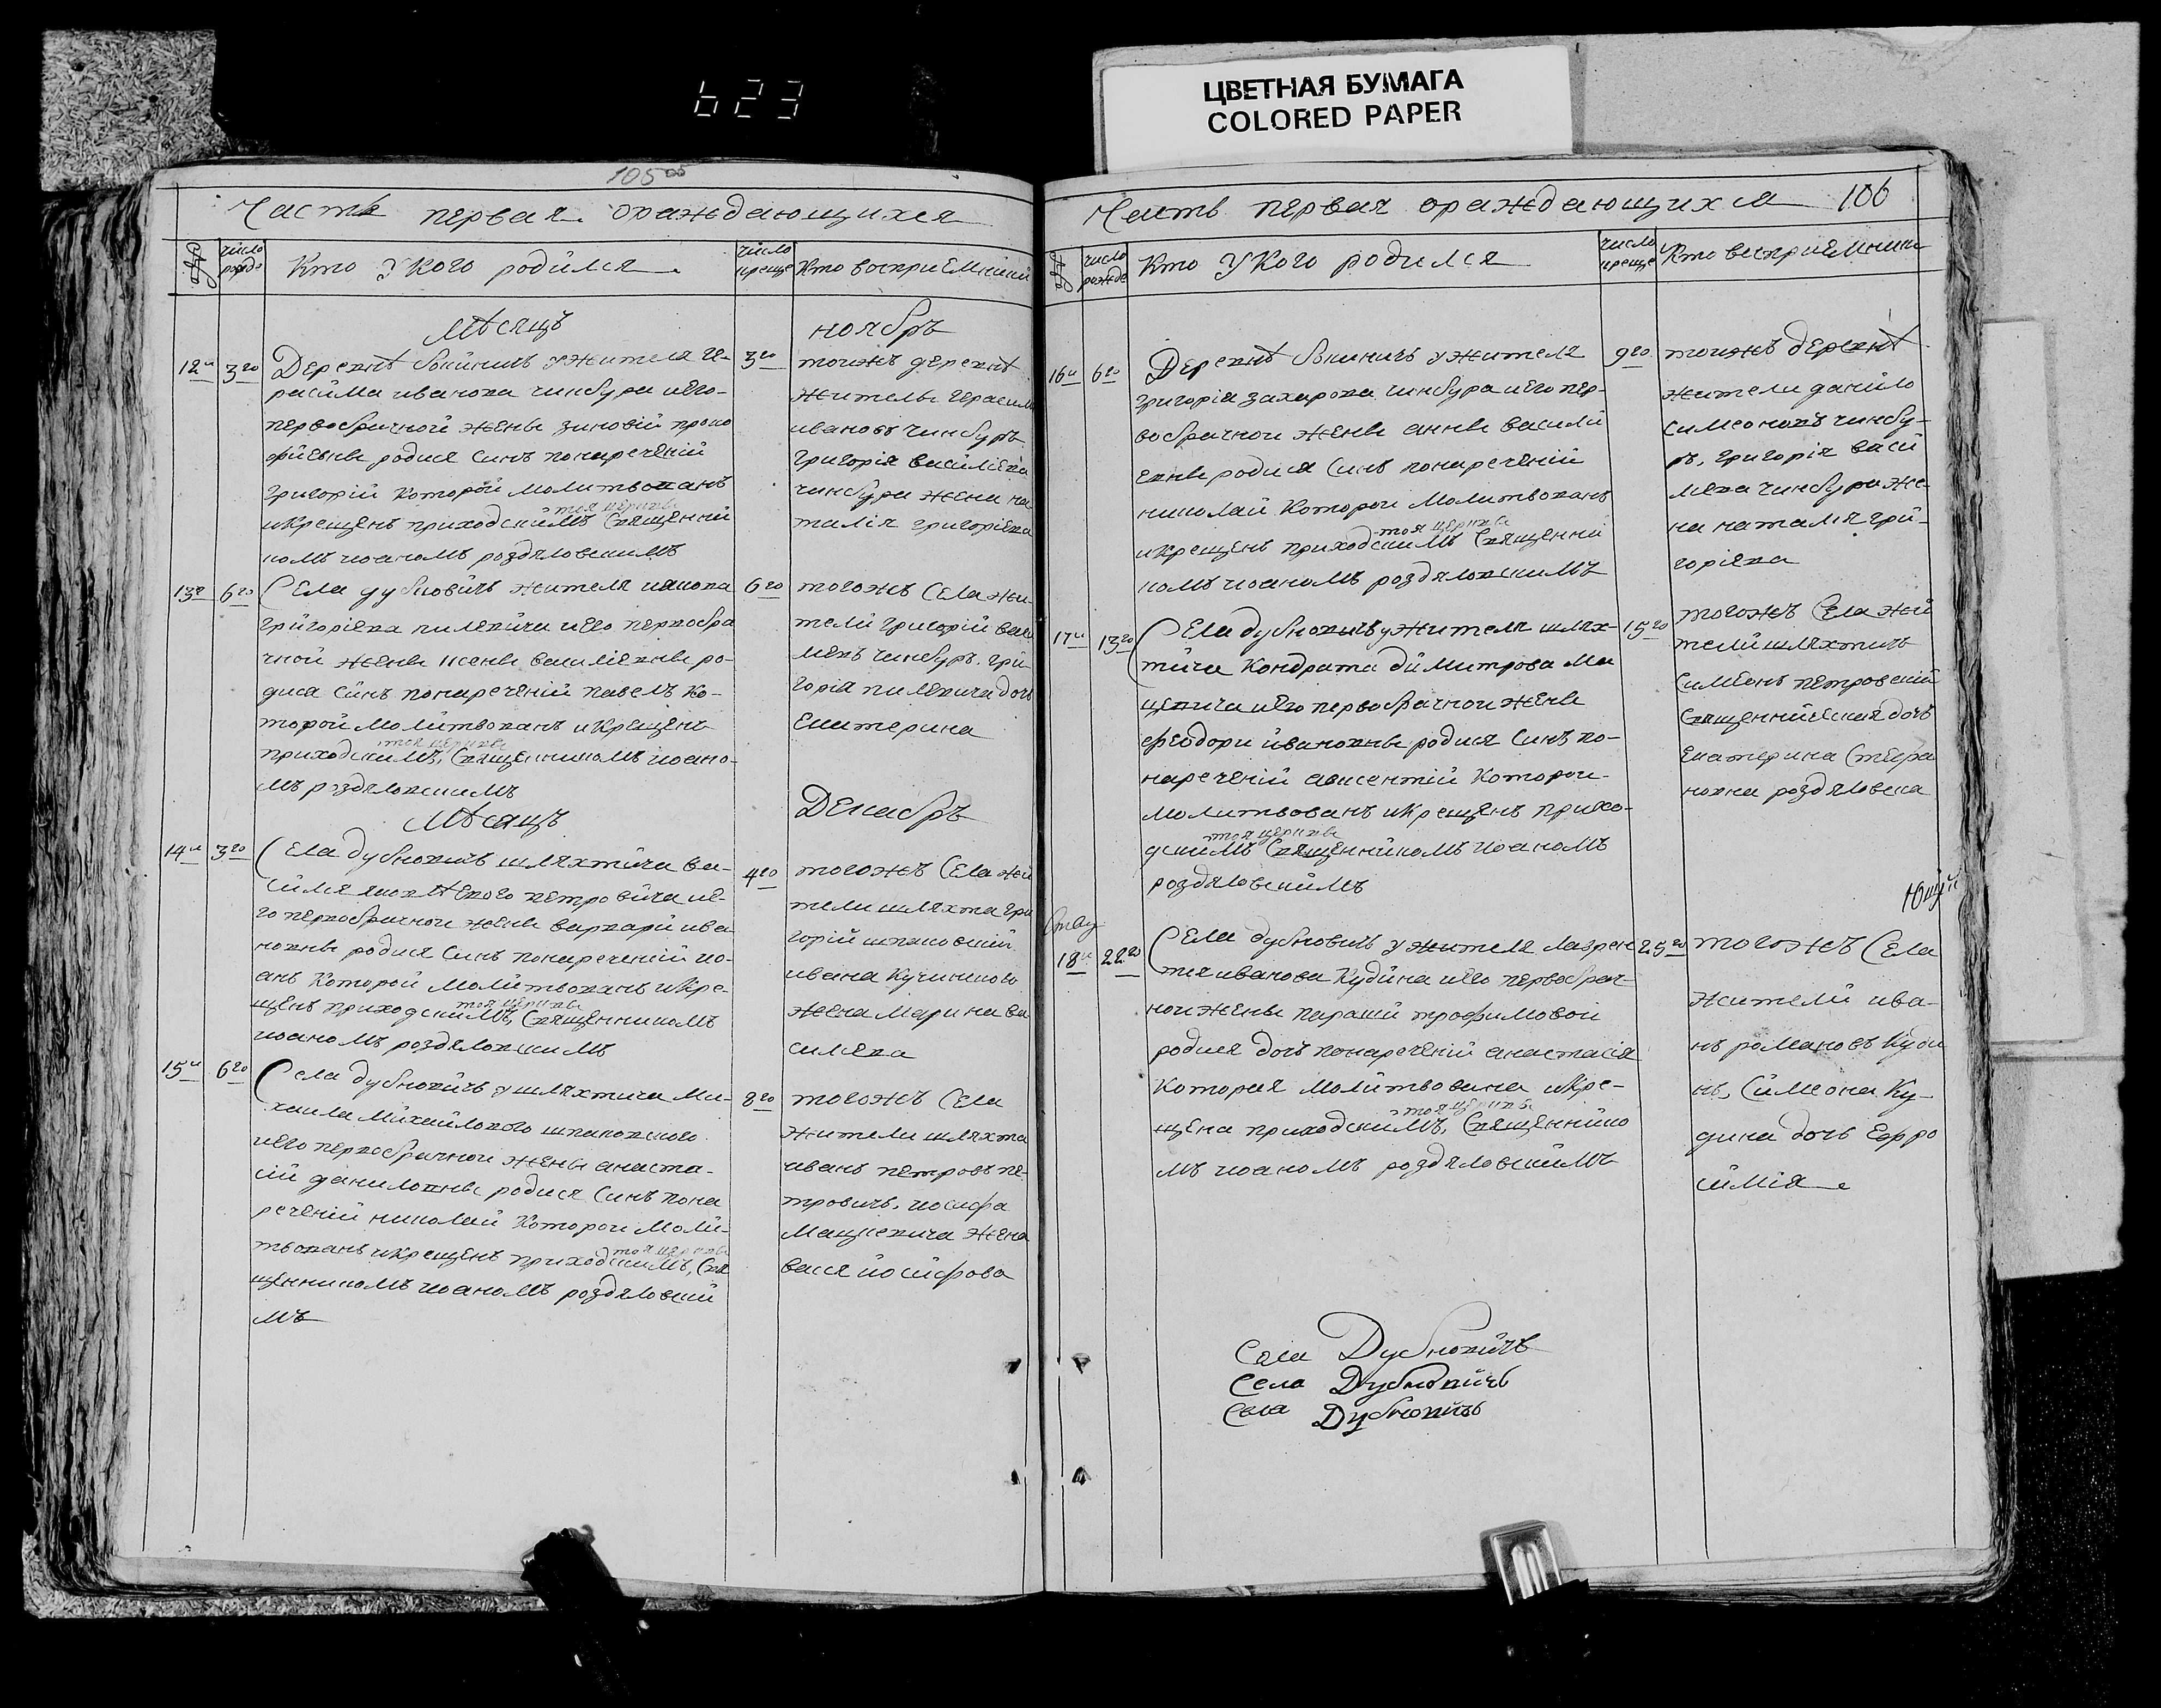 623
ЦВЕТНАЯ БУМАГА
COLORED PAPER
105
Часть первая ораждающихся
число рожде
Кто У кого родился
число креще
Кто восприемники
Мѣсяцъ ноябръ
12й 3го
Деревнѣ бокиничъ у жителя ге-
расима иванова чинбура и его
первобрачной жены зиновій проко
фйевны родися Синъ понареченій
григорій Которой молитвованъ
тоя церкве
и Крещенъ приходскимъ Священни
комъ иоаномъ роздяловскимъ
3го
тоижъ деревнѣ
жители герасим
ивановъ чинбуръ
григорія василіева
чинбура жена на
талія григоріева
13й 6го
Села дубновичъ жителя иакова
григоріева пилевича и его первобра
чной жены ксены василіевны ро-
дися Синъ понареченій павелъ ко-
торой молитвованъ и Крещенъ
тоя церкве
приходскимъ Священникомъ иоано-
мъ роздяловскимъ
6го
тогожъ Села жи-
тели григорій васи
лиевъ чинбуръ. гри
горія пилевича дочъ
Екатерина
Мѣсяцъ Декабръ
14й 3го
Села дубновичъ шляхтича ва-
силя петровича и е-
го первобрачной жены варвари ива
новны родися Синъ понареченій ио-
анъ Которой молитвованъ и Кре-
тоя церкве
щенъ приходскимъ, Священникомъ
иоаномъ роздяловскимъ
4го
тогожъ Села жи
тели шляхта гри
горій шпаковскій
ивана Кучинского
жена марина ва
силева
15й 6го
Села дубновичъ у шляхтича ми-
хаила михайлового шпаковского
и его первобрачной жены анаста-
сій даниловны родися Синъ пона
реченій николай Которой моли-
тоя церкве
твованъ и Крещенъ приходскимъ, Свя
щенникомъ иоаномъ роздяловский
мъ
8го
тогожъ Села
жители шляхта
иванъ петровъ пе-
тровичъ. иосифа
Мацкевича жена
вася иосифова
Часть первая ораждающихся 106
число рожде
Кто У Кого родился
число креще
Кто восприемники
16й 6го
Деревнѣ бокиничъ у жителя
григорія захарова чинбура и его пер-
вобрачной жены анны васили
евны родися Синъ понареченій
николай Которои молитвованъ
тоя церкве
и Крещенъ приходскимъ Священни
комъ иоаномъ роздяловскимъ
9го
тоижъ деревнѣ
жители данило
Симеоновъ чинбу-
ръ, григорія васи
лева чинбура же-
на наталія гри-
горіева
17й 13го
Села дубновичъ у жителя шлях-
тича Кондрата димитрова ма
цевича и его первобрачной жены
феодори ивановны родися Синъ по-
нареченій авксентій Которой
молитвованъ и Крещенъ прихо-
тоя церкве
дскимъ Священникомъ иоаномъ
роздяловскимъ
15го
тогожъ Села жи
тели шляхтичъ
Симеонъ петровскій
Священническая дочъ
Екатерина Стефа
новна роздяловска
18й 22го
Села дубновичъ у жителя лаврен
тия иванова Кудина и его первобрач-
ной жены параши трофимовой
родися дочъ понареченій анастасія
Которая молитвована и Кре-
тоя церкве
щена приходскимъ, Священнико
мъ иоаномъ роздяловскимъ
25го
тогожъ Села
жители ива-
нъ романовъ Куди
нъ, Симеона Ку-
дина дочъ Ефро
симія
Села Дубновичъ
Села Дубновичъ
Села Дубновичъ